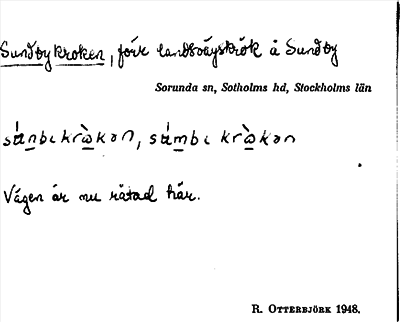 Sundbykroken, förr landsvägskrök å Sundby
Sorunda sn, Sotholms hd, Stockholms län
Vägen är nu rätad här.
R. Otterbjörk 1948.